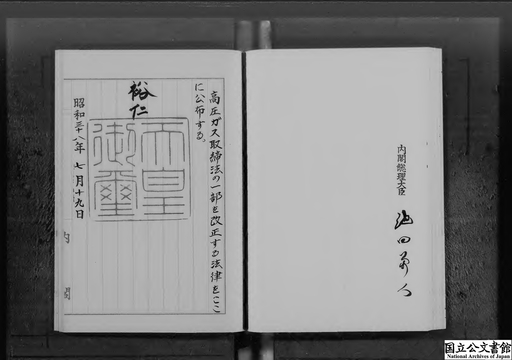 高圧ガス取締法の一部を改正する法律をここ
に公布する。
裕仁
天皇
御璽
昭和三十八年 七月十九日
内閣
内閣総理大臣
池田勇人
国立公文書館
National Archives of Japan